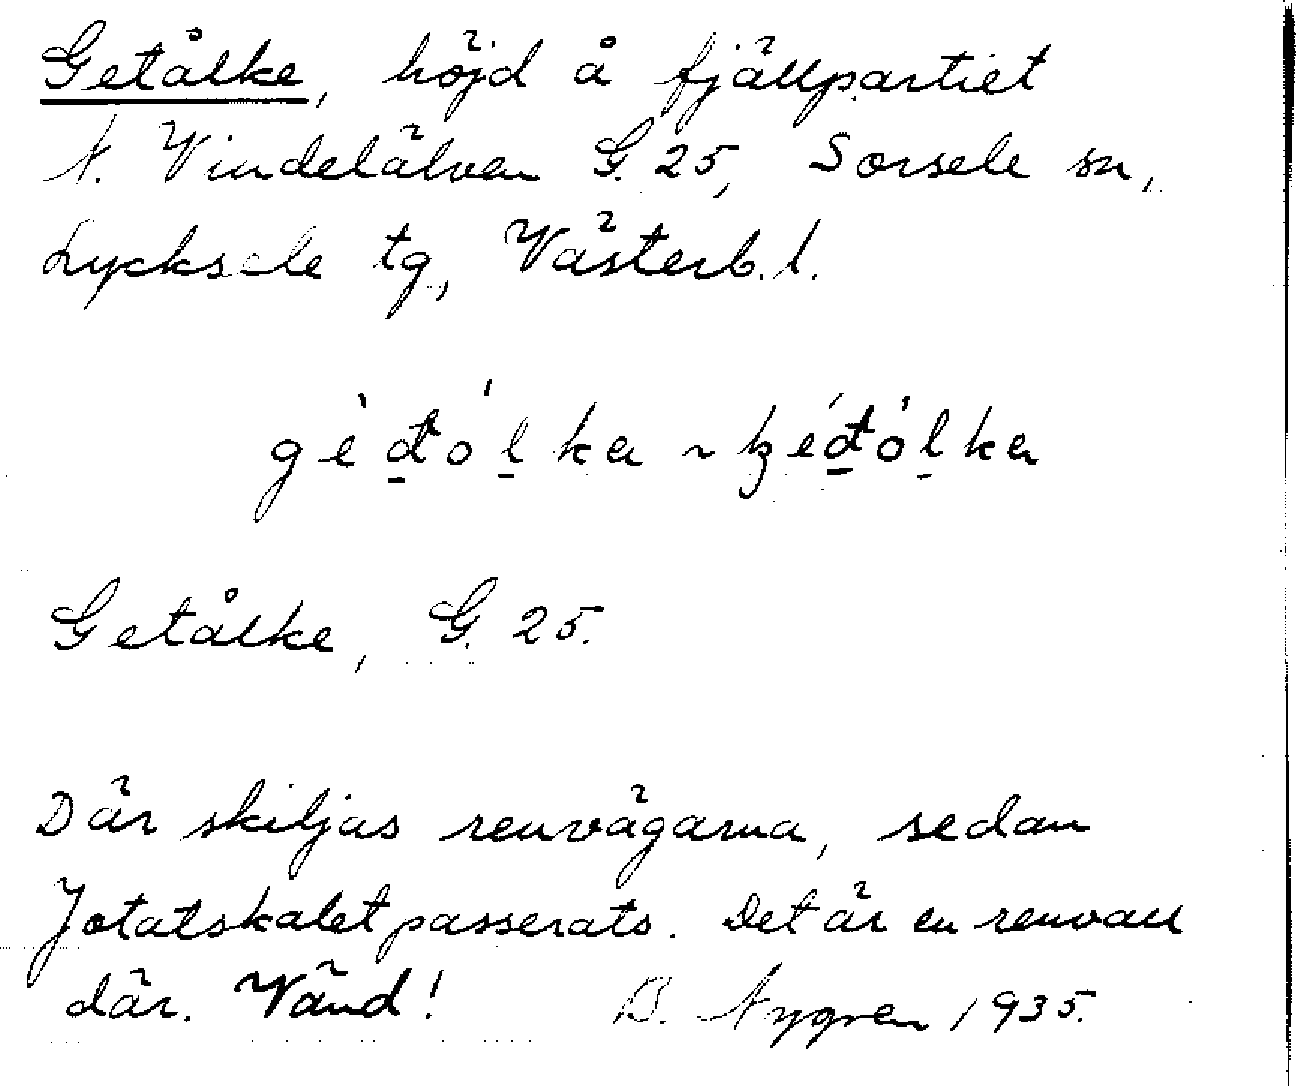 Getålke, höjd å fjällpartiet
N. Vindelälven G. 25, Sorsele sn,
Lycksele tg, Västerb. l.
gèđó̱lka ~ ķéđó̱lka
Getålke, G. 25.
Där skiljas renvägarna, sedan
Jotatskalet passerats. Det är en renvall
där. Vänd! B. Nygren 1935.